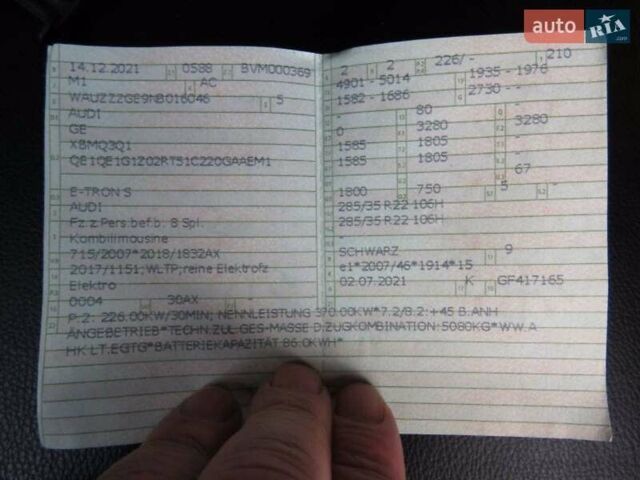 auto RIA .com
14.12.2021 0588 BVM000369
M1 AC
WAUZZZGE9NB016046 5
AUDI
GE
XBMQ3Q1
QE1QE1G1Z02RT51C220GAAEM1
E-TRON S
AUDI
Fz.z.Pers.bef.b. 8 Spl.
Kombilimousine
715/2007*2018/1832AX
2017/1151;WLTP;reine Elektrofz
Elektro
0004 30AX
2 2 226/ - 210
4901 - 5014 1935 - 1976
1582 - 1686 2730 - -
- 80 -
0 3280 3280
1585 1805 -
1585 1805 -
67
1800 750 5 -
285/35 R22 106H
285/35 R22 106H
-
-
SCHWARZ 9
e1*2007/46*1914*15
02.07.2021 K GF417165
P.2: 226.00KW/30MIN; NENNLEISTUNG 370.00KW*7.2/8.2:+45 B.ANH
ÄNGEBETRIEB*TECHN.ZUL.GES-MASSE D.ZUGKOMBINATION:5080KG*WW.A
HK LT.EGTG*BATTERIEKAPAZITÄT 86.0KWH*